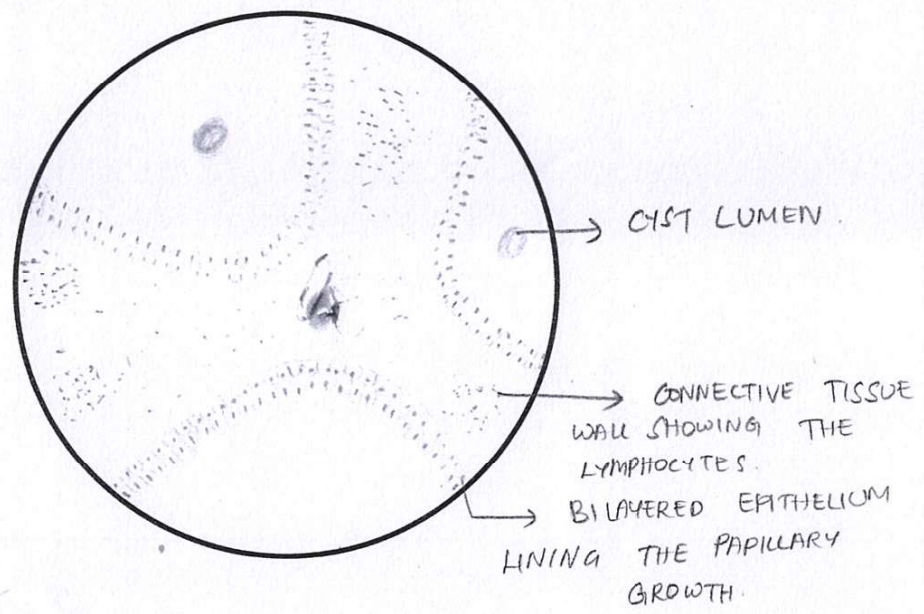 CYST LUMEN.
CONNECTIVE TISSUE
WALL SHOWING THE
LYMPHOCYTES.
BILAYERED EPITHELIUM
LINING THE PAPILLARY
GROWTH.